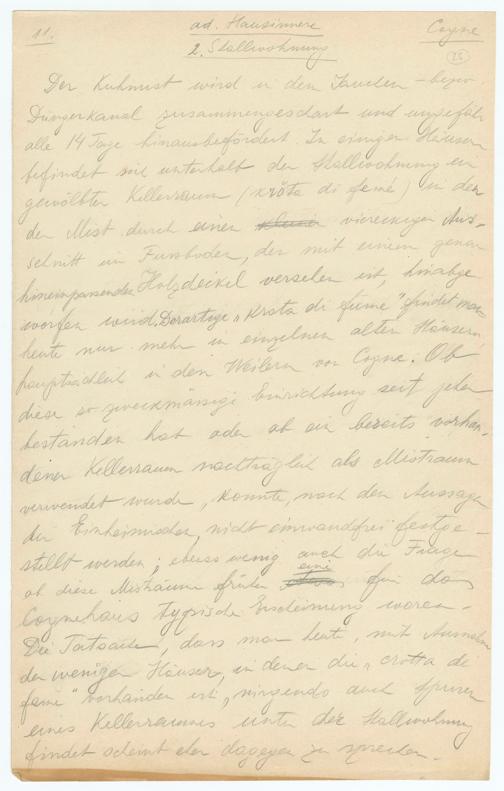 11. ad. Hausinnere Cogne
2. Stallwohnung 25
Der Kuhmist wird in den Jauchen - bezw.
Düngerkanal zusammengeschart und ungefähr
alle 14 Tage hinausbefördert. In einigen Häusern
befindet sich unterhalb der Stallwohnung ein
gewölbter Kellerraum (kròta di femé) in den
der Mist durch einen viereckigen Aus-
schnitt im Fussboden, der mit einem genau
hineinpassenden Holzdeckel versehen ist, hinabge
worfen wird. Derartige "krota di fume" findet man
heute nur mehr in einzelnen alten Häusern,
hauptsächlich in den Weilern von Cogne. Ob
diese so zweckmässige Einrichtung seit jeher
bestanden hat oder ob ein bereits vorhan-
dener Kellerraum nachträglich als Mistraum
verwendet wurde, konnte, nach den Aussagen
der Einheimischen, nicht einwandfrei festge-
stellt werden; ebenso wenig auch die Frage
ob diese Misträume früher eine für das
Cognehaus typische Erscheinung waren.
Die Tatsache, dass man heute, mit Ausnahme
der wenigen Häuser, in denen die "crotta de
fame" vorhanden ist, nirgends auch Spuren
eines Kellerraumes unter der Stallwohnung
findet scheint eher dagegen zu sprechen.